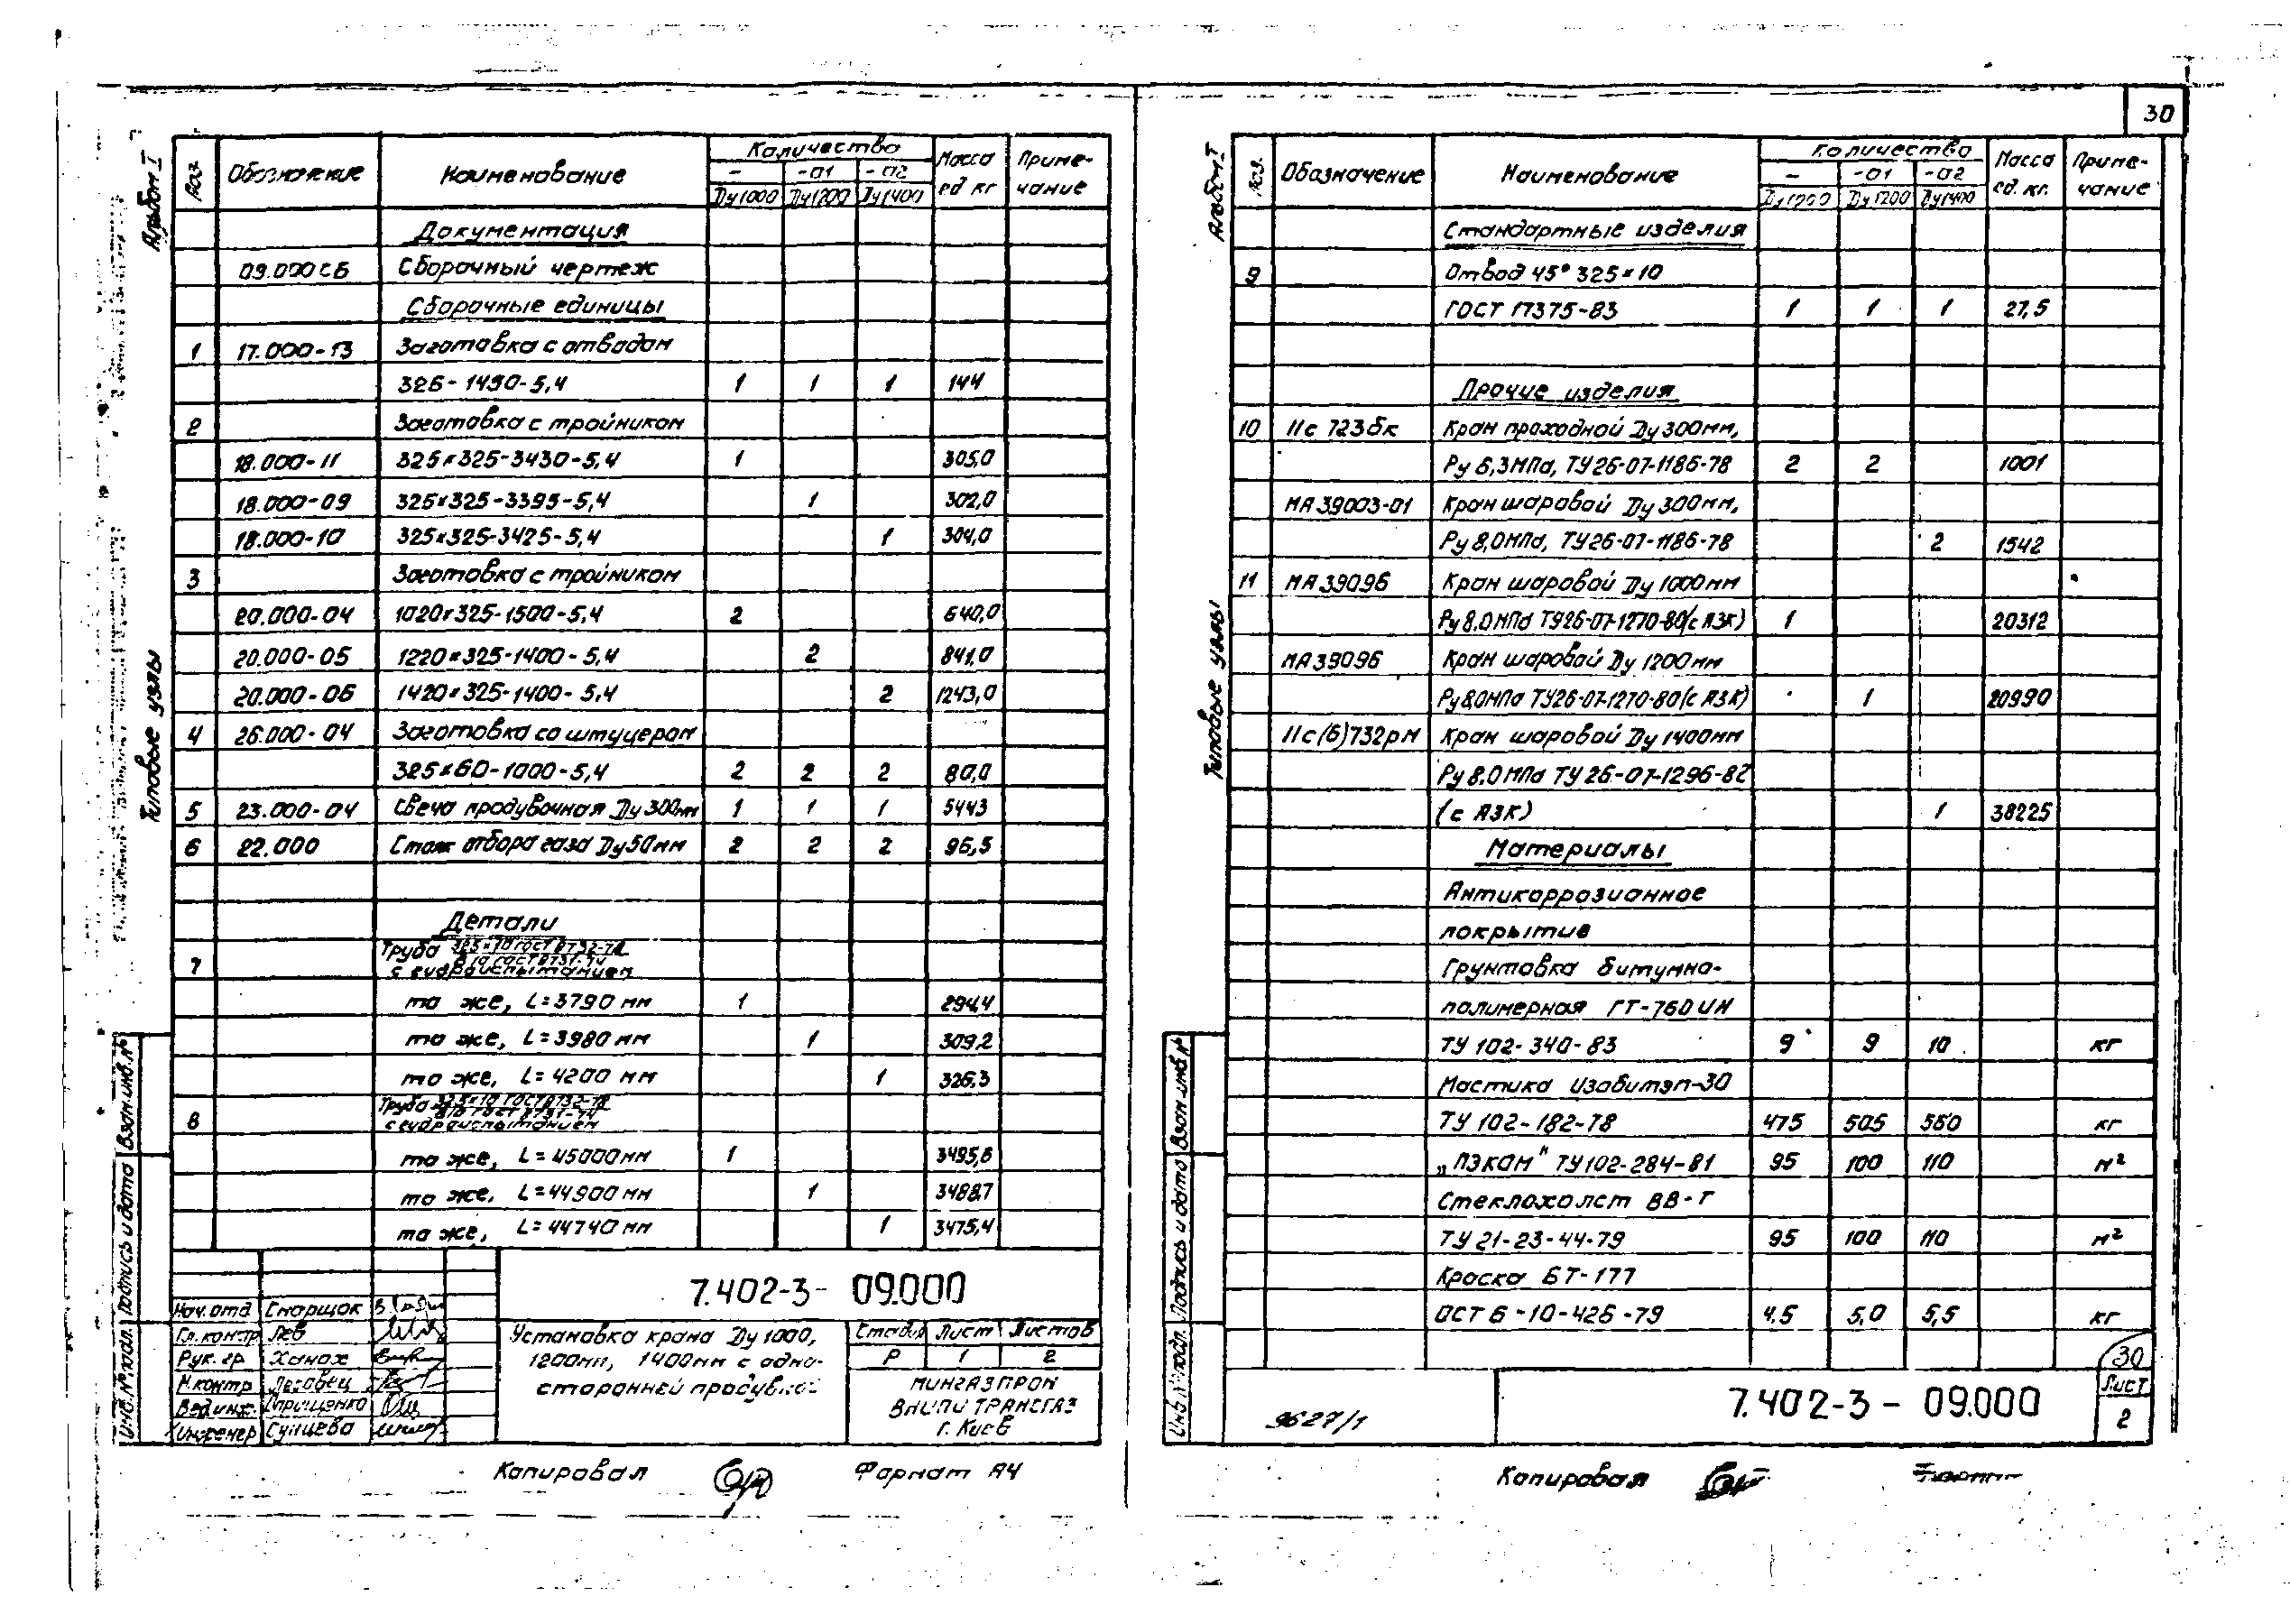 30
Альбом I
Типовые узлы
Поз. Обозначение Наименование Количество Масса ед. кг Примечание
- -01 -02
Ду1000 Ду1200 Ду1400
Документация
09.000СБ Сборочный чертеж
Сборочные единицы
1 17.000-13 Заготовка с отводом
325-1490-5,4 1 1 1 144
2 Заготовка с тройником
18.000-11 325×325-3430-5,4 1 305,0
18.000-09 325×325-3395-5,4 1 302,0
18.000-10 325×325-3425-5,4 1 304,0
3 Заготовка с тройником
20.000-04 1020×325-1500-5,4 2 640,0
20.000-05 1220×325-1400-5,4 2 841,0
20.000-06 1420×325-1400-5,4 2 1243,0
4 26.000-04 Заготовка со штуцером
325×60-1000-5,4 2 2 2 80,0
5 23.000-04 Свеча продувочная Ду 300мм 1 1 1 544,3
6 22.000 Стояк отбора газа Ду50мм 2 2 2 96,5
Детали
7 Труба 325×10 ГОСТ 8732-78
В10 ГОСТ 8731-74
с гидроиспытанием
то же, L=3790 мм 1 294,4
то же, L=3980 мм 1 309,2
то же, L=4200 мм 1 326,3
8 Труба 325×10 ГОСТ 8732-78
В10 ГОСТ 8731-74
с гидроиспытанием
то же, L=45000мм 1 3495,6
то же, L=44900мм 1 3488,7
то же, L=44740мм 1 3475,4
7.402-3- 09.000
Нач.отд Спорщок
Гл.контр Лев
Рук. гр Ханах
Н.контр
Вед.инж. Терещенко
Инженер Сунцева
Установка крана Ду 1000,
1200мм, 1400мм с одно-
сторонней продувкой
Стадия Лист Листов
Р 1 2
Мингазпром
ВНИПИТРАНСГАЗ
г. Киев
Инв.№подл. Подпись и дата Взам.инв.№
Копировал Формат А4
Альбом I
Типовые узлы
Поз. Обозначение Наименование Количество Масса ед. кг. Примечание
- -01 -02
Ду1000 Ду1200 Ду1400
Стандартные изделия
9 Отвод 45° 325×10
ГОСТ 17375-83 1 1 1 27,5
Прочие изделия
10 11с 723бк Кран проходной Ду300мм,
Ру 6,3МПа, ТУ26-07-1186-78 2 2 1001
МА39003-01 Кран шаровой Ду 300мм,
Ру 8,0МПа, ТУ26-07-1186-78 2 1542
11 МА39096 Кран шаровой Ду 1000мм
Ру8,0МПа ТУ26-07-1270-80(с АЗК) 1 20312
МА39096 Кран шаровой Ду 1200мм
Ру8,0МПа ТУ26-07-1270-80(с АЗК) 1 20990
11с(6)732рм Кран шаровой Ду 1400мм
Ру8,0МПа ТУ 26-07-1296-82
(с АЗК) 1 38225
Материалы
Антикоррозионное
покрытие
Грунтовка битумно-
полимерная ГТ-760ИН
ТУ 102-340-83 9 9 10 кг
Мастика Изобитэп-30
ТУ 102-182-78 475 505 550 кг
„ПЭКОМ" ТУ102-284-81 95 100 110 м²
Стеклохолст ВВ-Г
ТУ 21-23-44-79 95 100 110 м²
Краска БТ-177
ОСТ 6-10-426-79 4,5 5,0 5,5 кг
30
7.402-3 - 09.000
Лист
2
9627/1
Инв.№подл. Подпись и дата Взам.инв.№
Копировал Формат